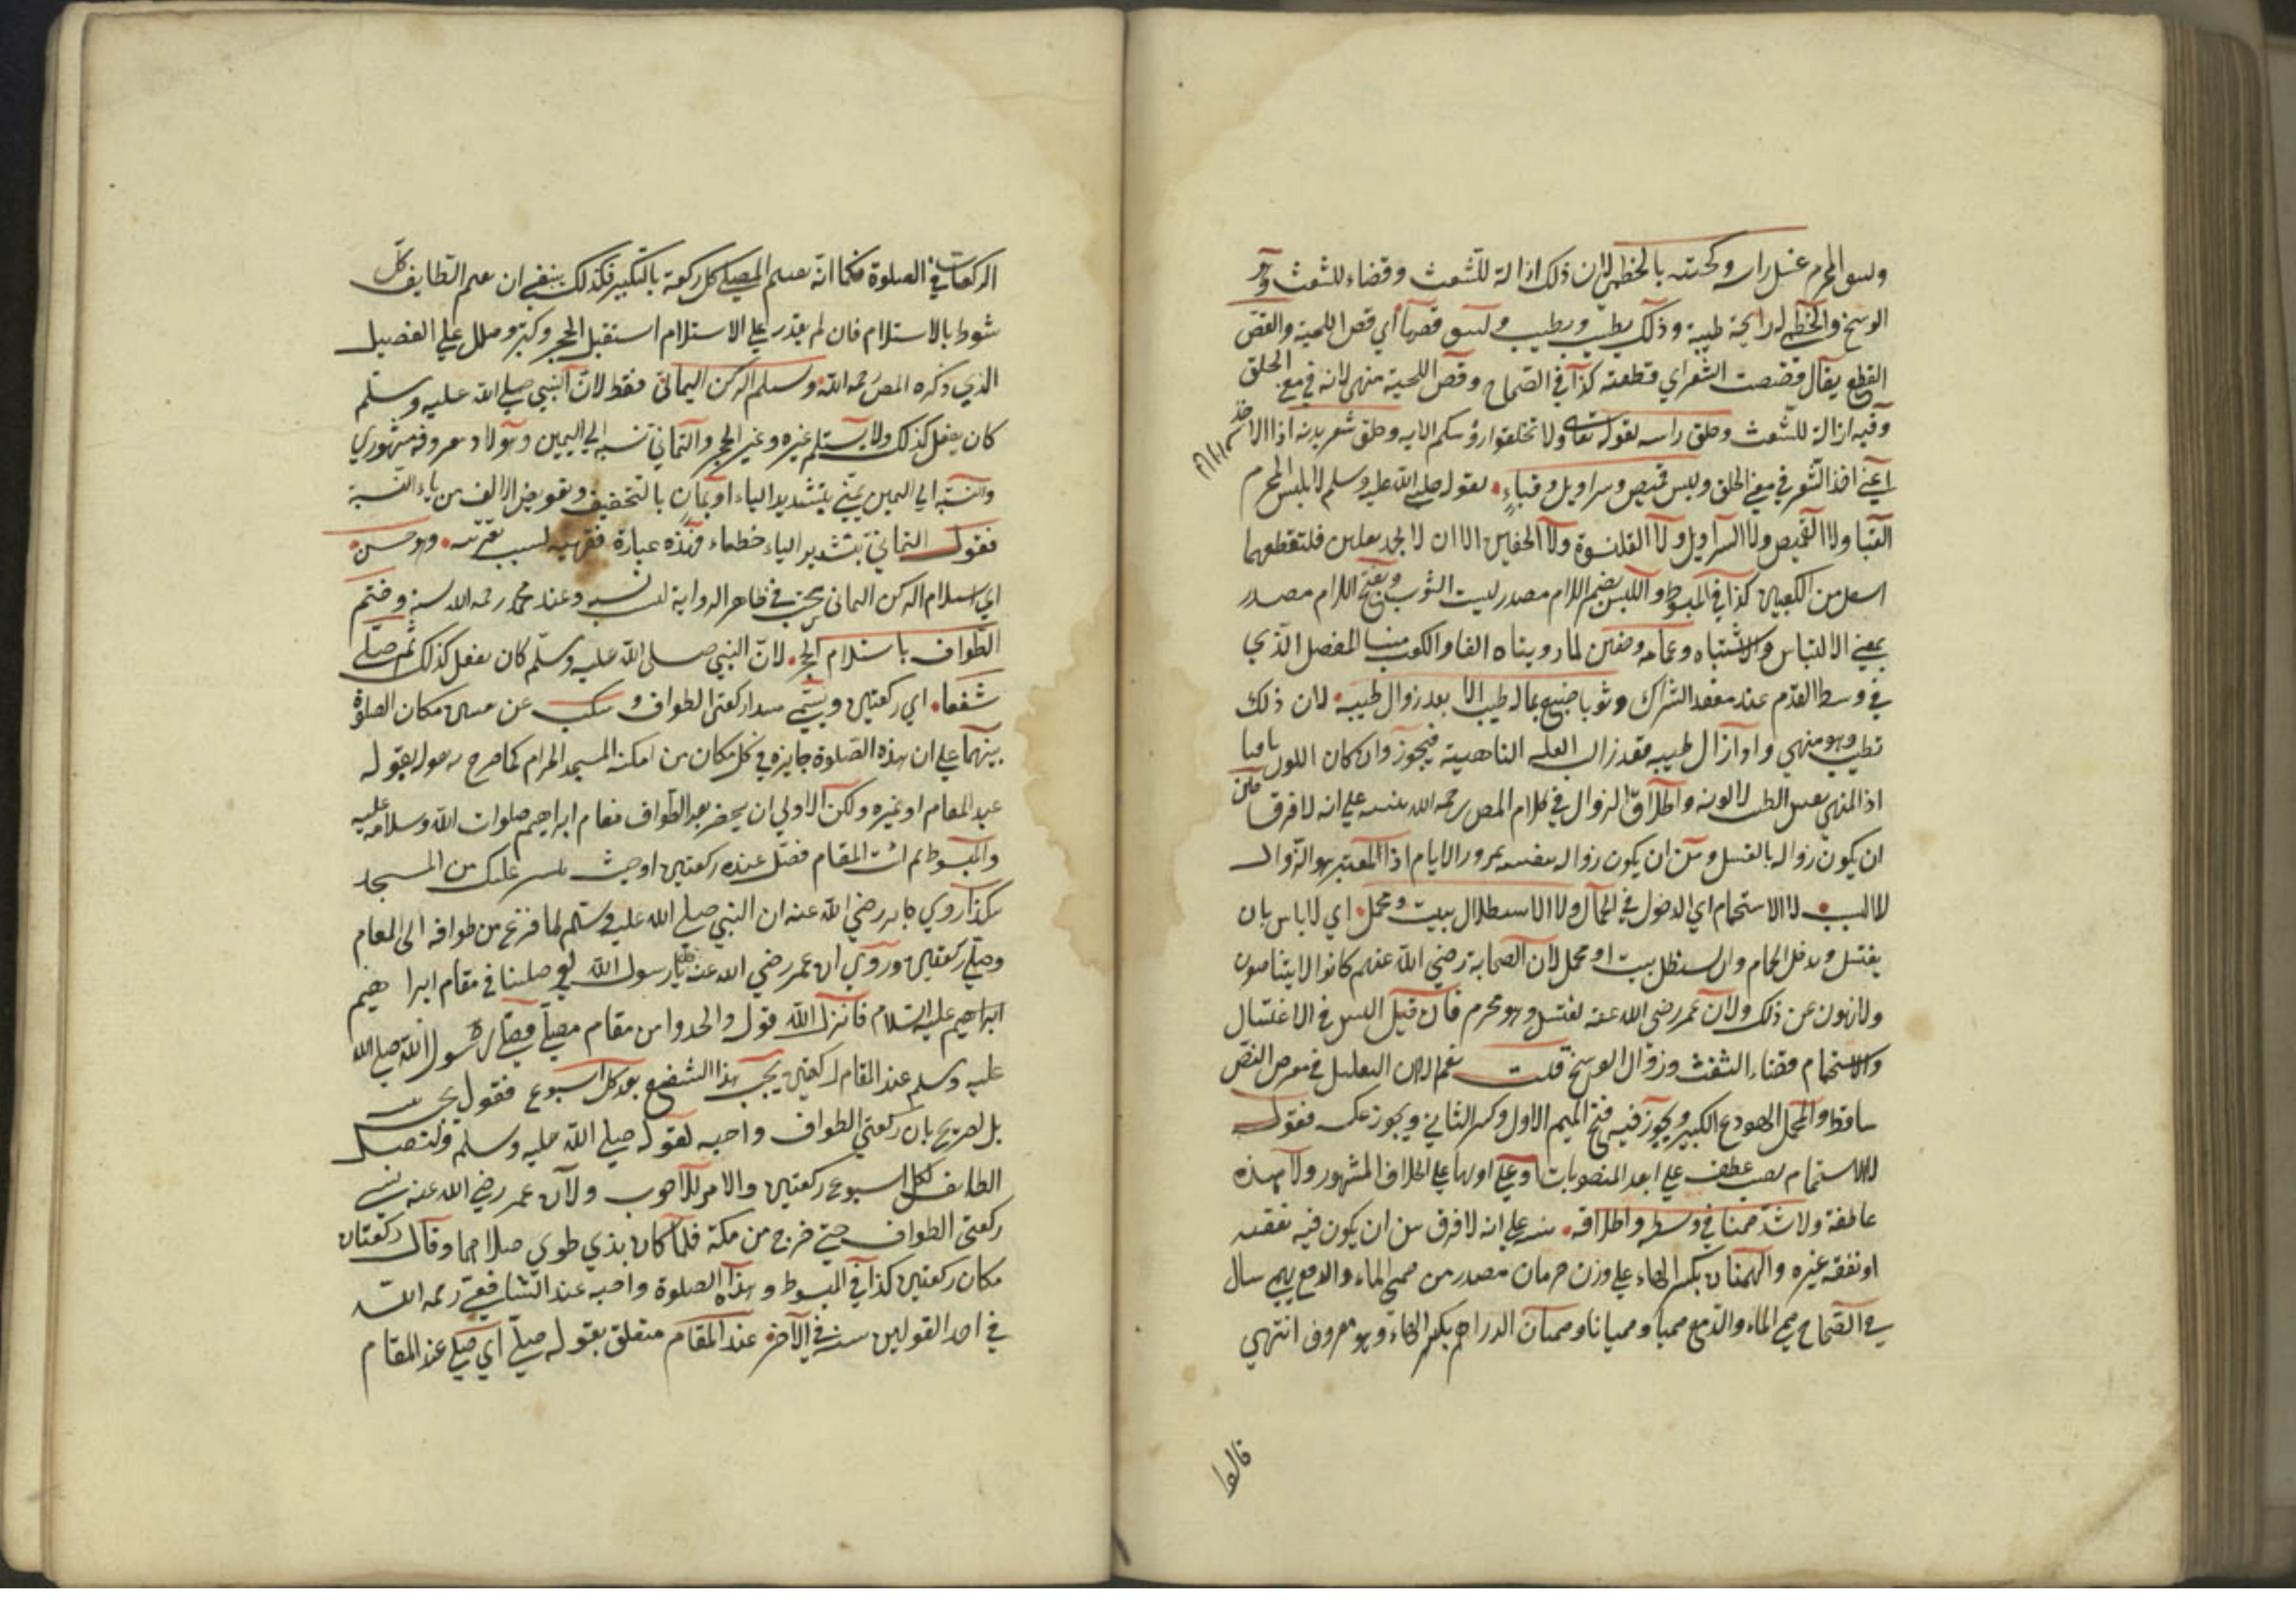 وليتق المحرم غسل راسه ولحيته بالخطمي لان ذلك ازالة للشعث وقضاء للتفث وهو
الوسخ والخطمي له رايحة طيبة وذلك يطيب ويطيب وليتق قصها أي قص اللحية والقص
القطع يقال قصصت الشعر اي قطعته كذا في الصحاح وقص اللحية منهي لانه في معنى الحلق
وفيه ازالة للشعث وحلق راسه لقوله تعالى ولا تحلقوا رؤسكم الايه وحلق شعر بدنه اذا الاخذ
اعني اخذ الشعر في معنى الحلق ولبس قميص وسراويل وقباء لقوله صلى الله عليه وسلم لا يلبس المحرم
القبا ولا القميص ولا السراويل ولا القلنسوة ولا الخفين الا ان لا يجد نعلين فليقطعهما
اسفل من الكعبين كذا في المبسوط واللبس بضم اللام مصدر لبست الثوب وبفتح اللام مصدر
بمعنى الالتباس والاشتباه وعمامة وخفين لما روينا الفا والكعب هنا المفصل الذي
في وسط القدم عند معقد الشراك وثوبا صبغ بماله طيب الا بعد زوال طيبه لان ذلك
تطيب وهو منهي واذا زال طيبه فقد زال العلة الناهية فيجوز وان كان اللون باقيا
اذ المنهي نفس الطيب لا لونه واطلاق الزوال في كلام المص رحمه الله ينبه على انه لا فرق بين
ان يكون زواله بالغسل وبين ان يكون زواله بنفسه بمرور الايام اذ المعتبر هو الزوال
لا الاستحمام اي الدخول في الحمام ولا الاستظلال ببيت ومحمل اي لا باس بان
يغتسل ويدخل الحمام وان يستظل ببيت او محمل لان الصحابة رضي الله عنهم كانوا لا
ولا ينهون عن ذلك ولان عمر رضي الله عنه اغتسل وهو محرم فان قيل اليس في الاغتسال
والاستحمام قضاء التفث وزوال الوسخ قلت نعم لكن التعليل في معرض النص
ساقط والمحمل الهودج الكبير ويجوز فيه فتح الميم الاول وكسر الثاني ويجوز عكسه فقوله
لا الاستحمام نصب عطف على ابعد المنصوبات او على اولها على الخلاف المشهور ولا هذه
عاطفة ولا شد هميان في وسطه واطلاقه ينبه على انه لا فرق بين ان يكون فيه نفقته
او نفقة غيره والهميان بكسر الهاء على وزن حرمان مصدر من همى الماء والدمع يهمي سال
في الصحاح همى الماء والدمع هميا وهميانا وهميان الدراهم بكسر الهاء وهو معروف انتهى
قالوا
الركعات في الصلوة فكما انه يفتتح المصلي كل ركعة بالتكبير فكذلك ينبغي ان يفتتح الطايف كل
شوط بالاستلام فان لم يقدر على الاستلام استقبل الحجر وكبر وهلل على التفصيل
الذي ذكره المص رحمه الله ويستلم الركن اليماني فقط لان النبي صلى الله عليه وسلم
كان يفعل كذلك ولا يستلم غيره وغير الحجر واليماني نسبة الى اليمين
والنسبة الى اليمن يمني بتشديد الياء او يمان بالتخفيف وتعويض الالف من ياء النسبة
فقوله اليماني بتشديد الياء خطاء وهو حسن
اي استلام الركن اليماني في ظاهر الرواية وعند محمد رحمه الله سنة وختم
الطواف باستلام الحجر لان النبي صلى الله عليه وسلم كان يفعل كذلك ثم صلى
شفعا اي ركعتين ويسمى هذا ركعتى الطواف وسكت عن تعيين مكان الصلوة
تنبيها على ان هذه الصلوة جايزة في كل مكان من امكنة المسجد الحرام كما صرح بقوله
عند المقام او غيره ولكن الاولى ان يحضر بعد الطواف مقام ابراهيم صلوات الله وسلامه عليه
والمبسوط ثم ائت المقام فصل عنده ركعتين او حيث تيسر عليك من المسجد
هكذا روى جابر رضي الله عنه ان النبي صلى الله عليه وسلم لما فرغ من طوافه اتى المقام
وصلى ركعتين وروي ان عمر رضي الله عنه قال يا رسول الله لو صلينا في مقام ابراهيم
ابراهيم عليه السلام فانزل الله قوله واتخذوا من مقام مصلى فصلى رسول الله صلى الله
عليه وسلم عند المقام ركعتين يجب هذا الشفع بعد كل اسبوع فقوله يجب
بل تصريح بان ركعتي الطواف واجبه لقوله صلى الله عليه وسلم وليصل
الطايف لكل اسبوع ركعتين والامر للوجوب ولان عمر رضي الله عنه نسي
ركعتى الطواف حتى خرج من مكة فلما كان بذي طوى صلاهما وقال ركعتان
مكان ركعتين كذا في المبسوط وهذه الصلوة واجبه عند الشافعي رحمه الله
في احد القولين سنة في الآخر عند المقام متعلق بقوله صلى أي صلى عند المقام